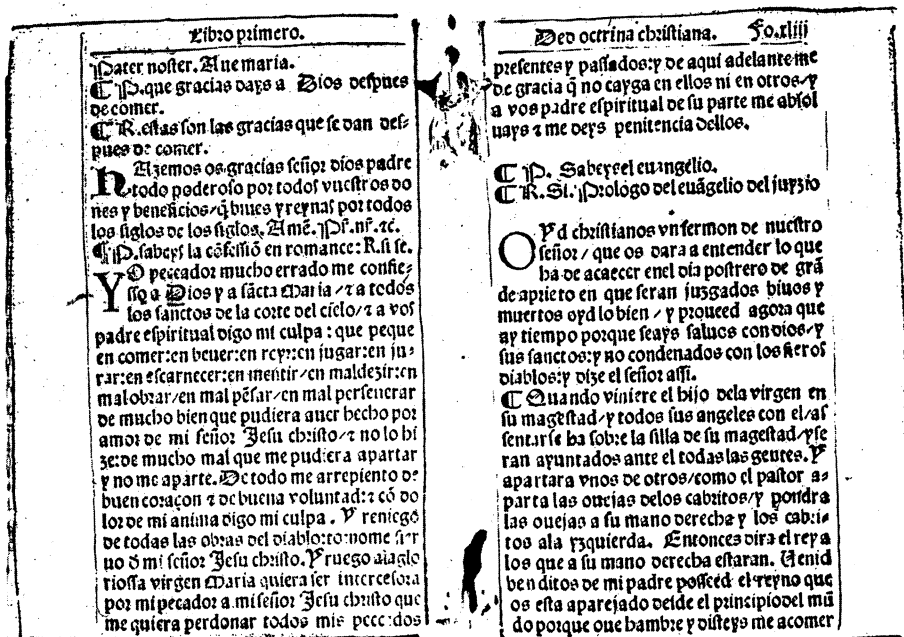 Libro primero.
Pater noster. Aue maria.
¶ P. que gracias days a Dios despues
de comer.
¶ R. estas son las gracias que se dan des-
pues de comer.
HAzemos os gracias señor dios padre
todo poderoso por todos vuestros do
nes y beneficios/q̃ biues y reynas por todos
los siglos de los siglos. Amẽ. Pr̃. nr̃. ⁊c̃.
¶ P. sabeys la cõfessiõ en romance: R. si se.
YO peccador mucho errado me confie-
sso a Dios y a sãcta Maria /⁊ a todos
los sanctos de la corte del cielo/⁊ a vos
padre espiritual digo mi culpa : que peque
en comer:en beuer:en reyr:en jugar:en ju-
rar:en escarnecer:en mentir/en maldezir:en
mal obrar/en mal pẽsar/en mal perseuerar
de mucho bien que pudiera auer hecho por
amor de mi señor Jesu christo/⁊ no lo hi
ze:de mucho mal que me pudiera apartar
y no me aparte. De todo me arrepiento de
buen coraçon ⁊ de buena voluntad:⁊ cõ do
lor de mi anima digo mi culpa . Y reniego
de todas las obras del diablo:tomome sier
uo d̃ mi señor Jesu christo. Y ruego a la glo
riossa virgen Maria quiera ser intercesora
por mi pecador a mi señor Jesu christo que
me quiera perdonar todos mis peccados
De doctrina christiana. Fo. xliii
presentes y passados:y de aqui adelante me
de gracia q̃ no cayga en ellos ni en otros/y
a vos padre espiritual de su parte me absol
uays ⁊ me deys penitencia dellos.
¶ P. Sabeys el euangelio.
¶ R. Si. Prologo del euãgelio del juyzio
OYd christianos vn sermon de nuestro
señor / que os dara a entender lo que
ha de acaecer enel dia postrero de grã
de aprieto en que seran juzgados biuos y
muertos oyd lo bien / y proueed agora que
ay tiempo porque seays saluos con dios/y
sus sanctos:y no condenados con los fieros
diablos:y dize el señor assi.
¶ Quando viniere el hijo dela virgen en
su magestad/y todos sus angeles con el/as
sentarse ha sobre la silla de su magestad/y se
ran ayuntados ante el todas las gentes. Y
apartara vnos de otros/como el pastor a-
parta las ouejas delos cabritos/y pondra
las ouejas a su mano derecha y los cabri-
tos ala yzquierda. Entonces dira el rey a
los que a su mano derecha estaran. Uenid
benditos de mi padre posseed el reyno que
os esta aparejado desde el principio del mũ
do porque oue hambre y disteys me a comer